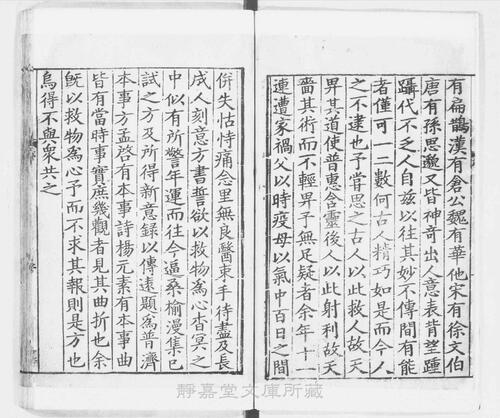 有扁鵲漢有倉公魏有華佗宋有徐文伯
唐有孫思邈又皆神奇出人意表背望踵
躡代不乏人自茲以往其妙不傳間有能
者僅可一二數何古人精巧如是而今人
之不逮也予嘗思之古人以此救人故天
畀其道使普惠含靈後人以此射利故天
嗇其術而不輕畀予無足疑者余年十一
連遭家禍父以時疫母以氣中百日之間
併失怙恃痛念里無良醫束手待盡及長
成人刻意方書誓欲以救物為心杳冥之
中似有所警年運而往今逼桑榆漫集已
試之方及所得新意錄以傳遠題為普濟
本事方孟啓有本事詩楊元素有本事曲
皆有當時事實庶幾觀者見其曲折也余
既以救物為心予而不求其報則是方也
烏得不與衆共之
靜嘉堂文庫所藏